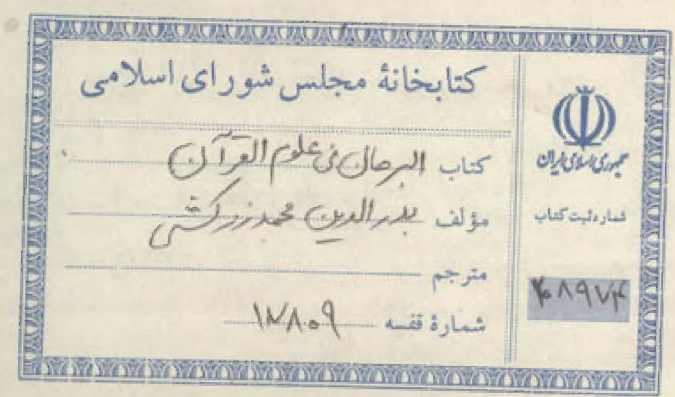 کتابخانهٔ مجلس شورای اسلامی
کتاب البرهان فی علوم القرآن
مؤلف بدرالدین محمد زرکشی
مترجم
شمارهٔ قفسه ۱۷۸۰۹
جمهوری اسلامی ایران
شماره ثبت کتاب